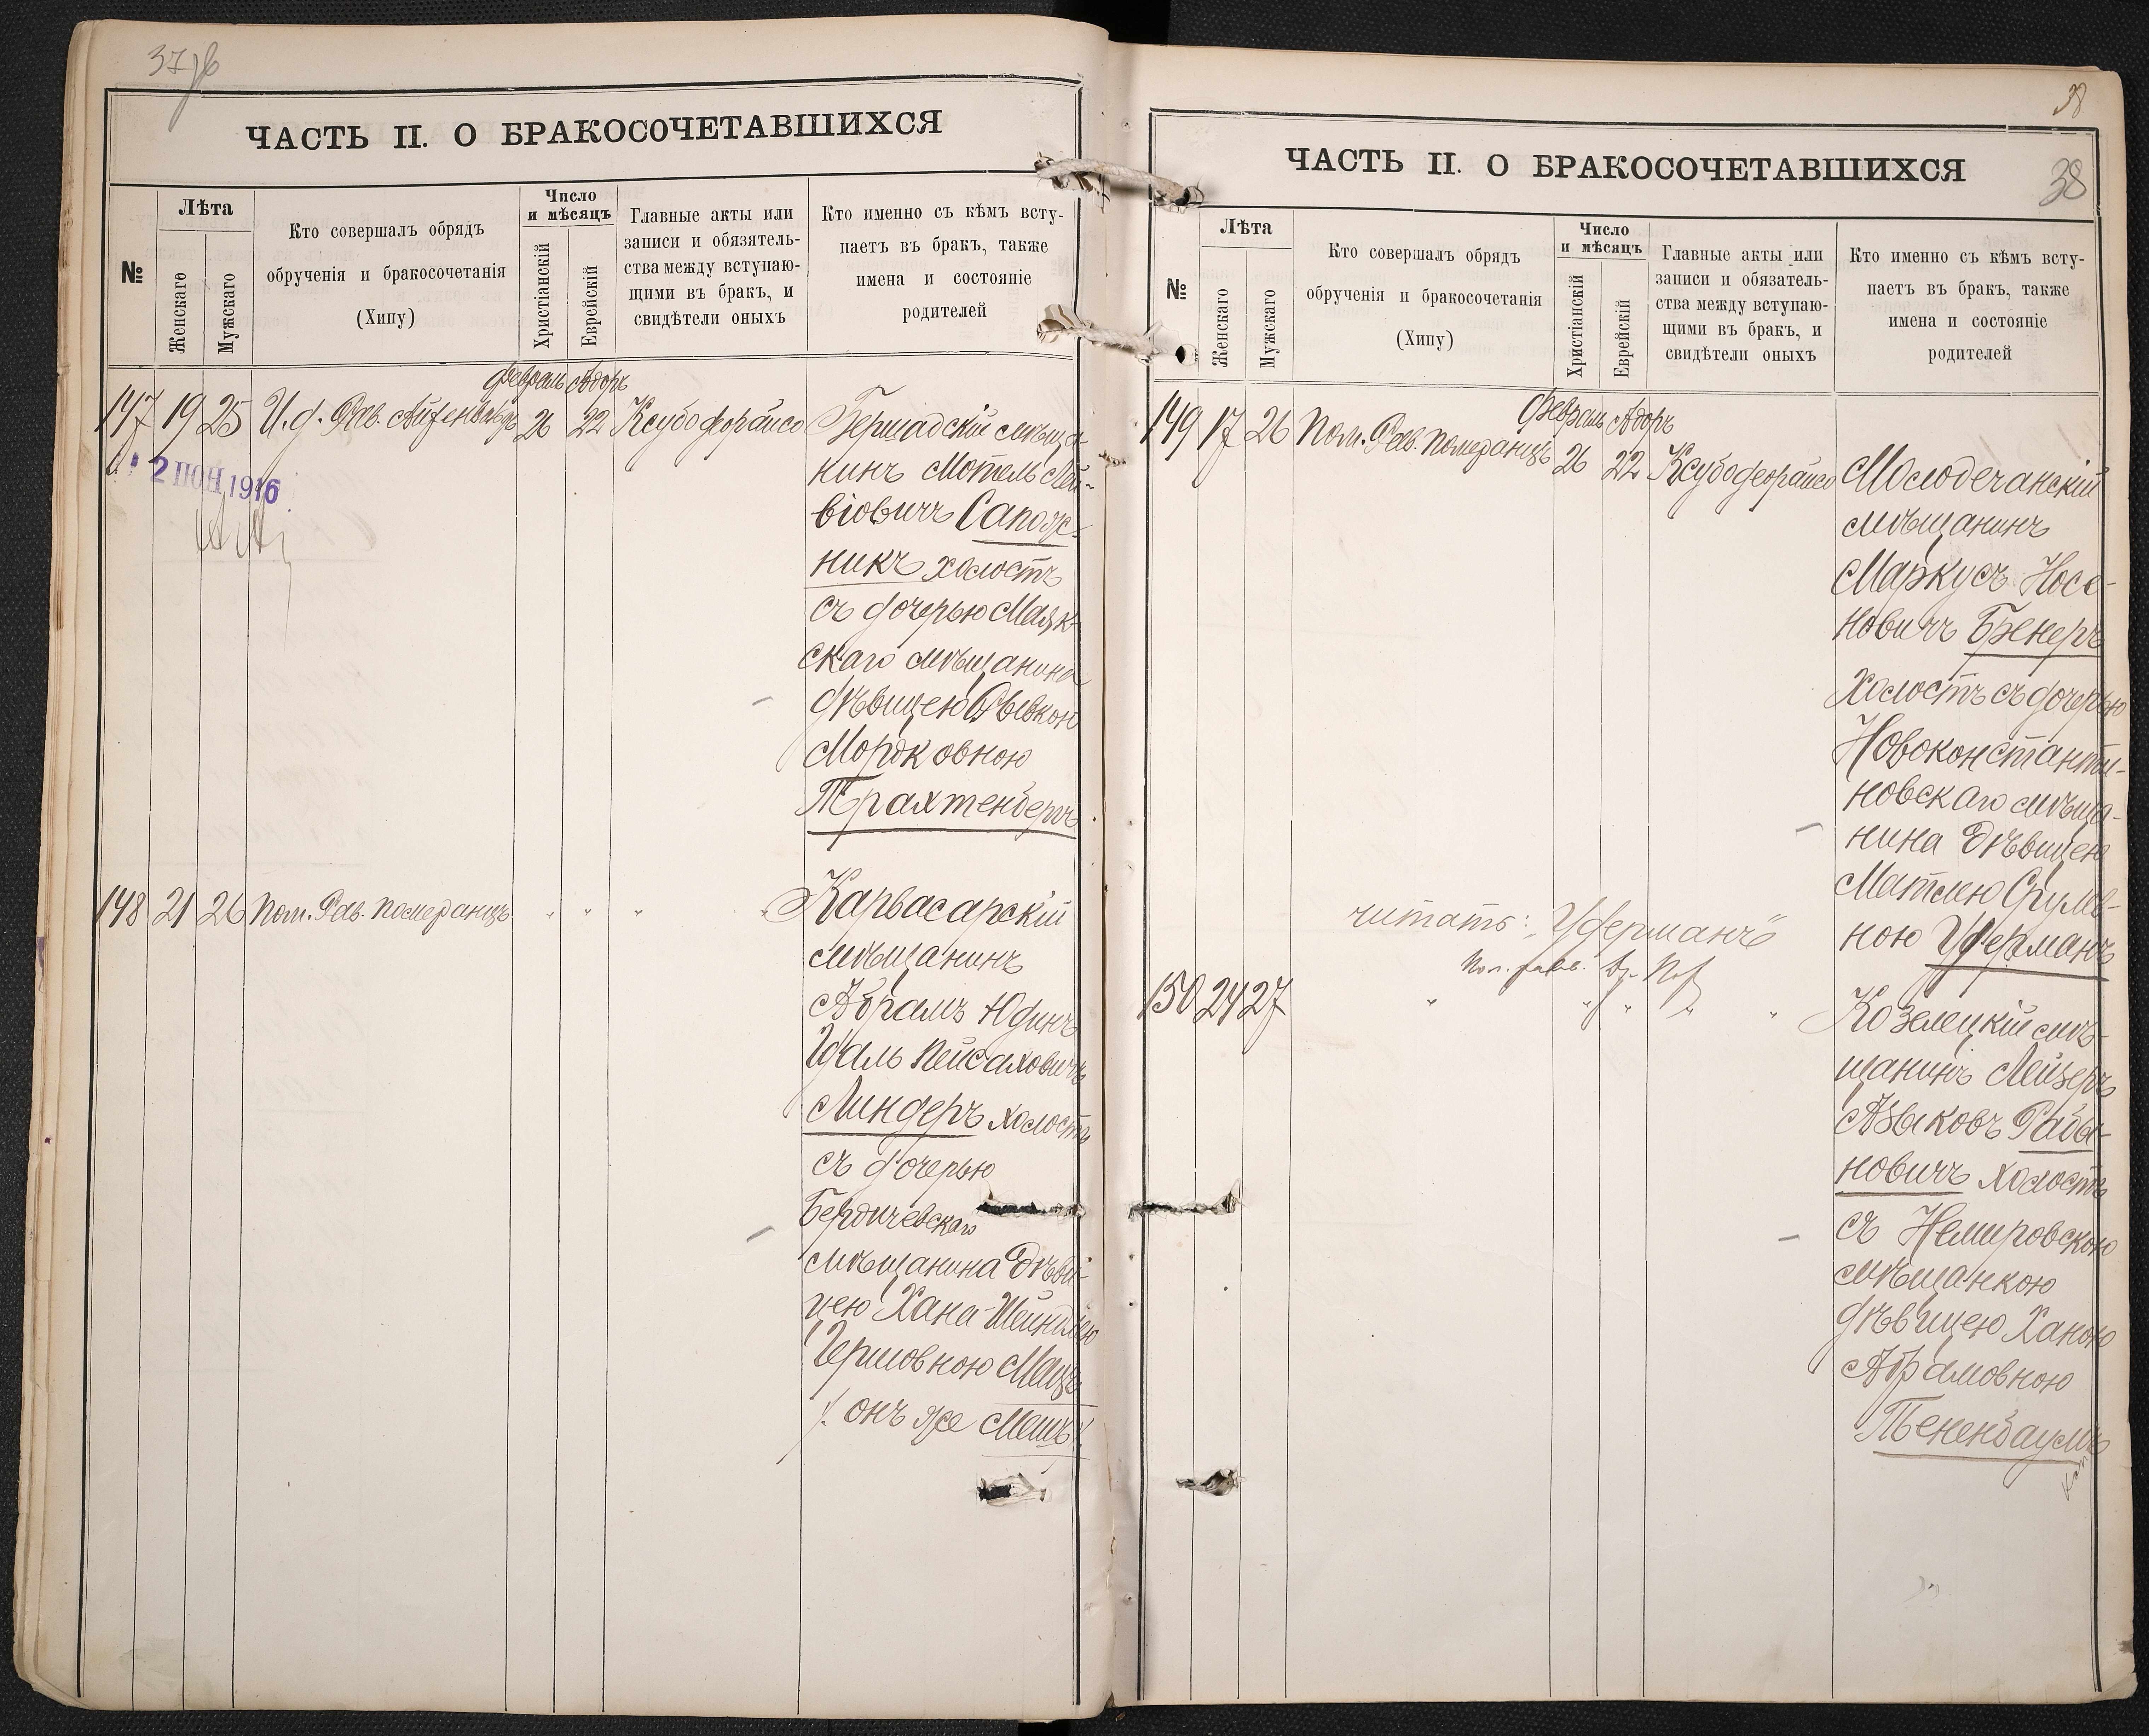 37 об
ЧАСТЬ II. О БРАКОСОЧЕТАВШИХСЯ
№
Лѣта
Женскаго
Мужскаго
Кто совершалъ обрядъ
обрученія и бракосочетанія
(Хипу)
Число
и мѣсяцъ
Христіанскій
Еврейскій
Главные акты или
записи и обязятель-
ства между вступаю-
щими въ бракъ, и
свидѣтели оныхъ
Кто именно съ кѣмъ всту-
паетъ въ бракъ, также
имена и состояніе
родителей
Февраль Адоръ
147 19 25 И.д. Рав. Айзенбергъ 26 22 Ксубо форайсо
2 1916
Бершадскій мѣща-
нинъ Мотель Лей-
віовичъ Сапож-
никъ холостъ
съ дочерью Маяк-
скаго мѣщанина
дѣвицею Рывкою
Мордковною
Трахтенбергъ
148 21 26 Пом. Рав. Померанцъ " " " "
Карвасарскій
мѣщанинъ
Абрамъ Юдинъ
Идаль Пейсаховичъ
Линдеръ холостъ
съ дочерью
Бердичевскаго
мѣщанина дѣви-
цею Хана-Шейндлею
Гершовною Мацъ
/. онъ же Мешъ ./
38
38
ЧАСТЬ II. О БРАКОСОЧЕТАВШИХСЯ
№
Лѣта
Женскаго
Мужскаго
Кто совершалъ обрядъ
обрученія и бракосочетанія
(Хипу)
Число
и мѣсяцъ
Христіанскій
Еврейскій
Главные акты или
записи и обязатель-
ства между вступаю-
щими въ бракъ, и
свидѣтели оныхъ
Кто именно съ кѣмъ всту-
паетъ въ бракъ, также
имена и состояніе
родителей
Февраль Адоръ
149 17 26 Пом. Рав. Померанцъ 26 22 Ксубо форайсо
Молодечанскій
мѣщанинъ
Маркусъ Носо-
новичъ Брнеръ
Холостъ съ дочерью
Новоконстанти-
новскаго мѣща-
нина дѣвицею
Матлею Срулев-
ною Уферманъ
читать: "Уферманъ"
150 24 27 " " " " "
Козелецкій мѣ-
щанинъ Лейзеръ
Айзыковъ Раби-
новичъ холостъ
съ Немировскою
мѣщанкою
дѣвицею Ханою
Абрамовною
Тененбаумъ